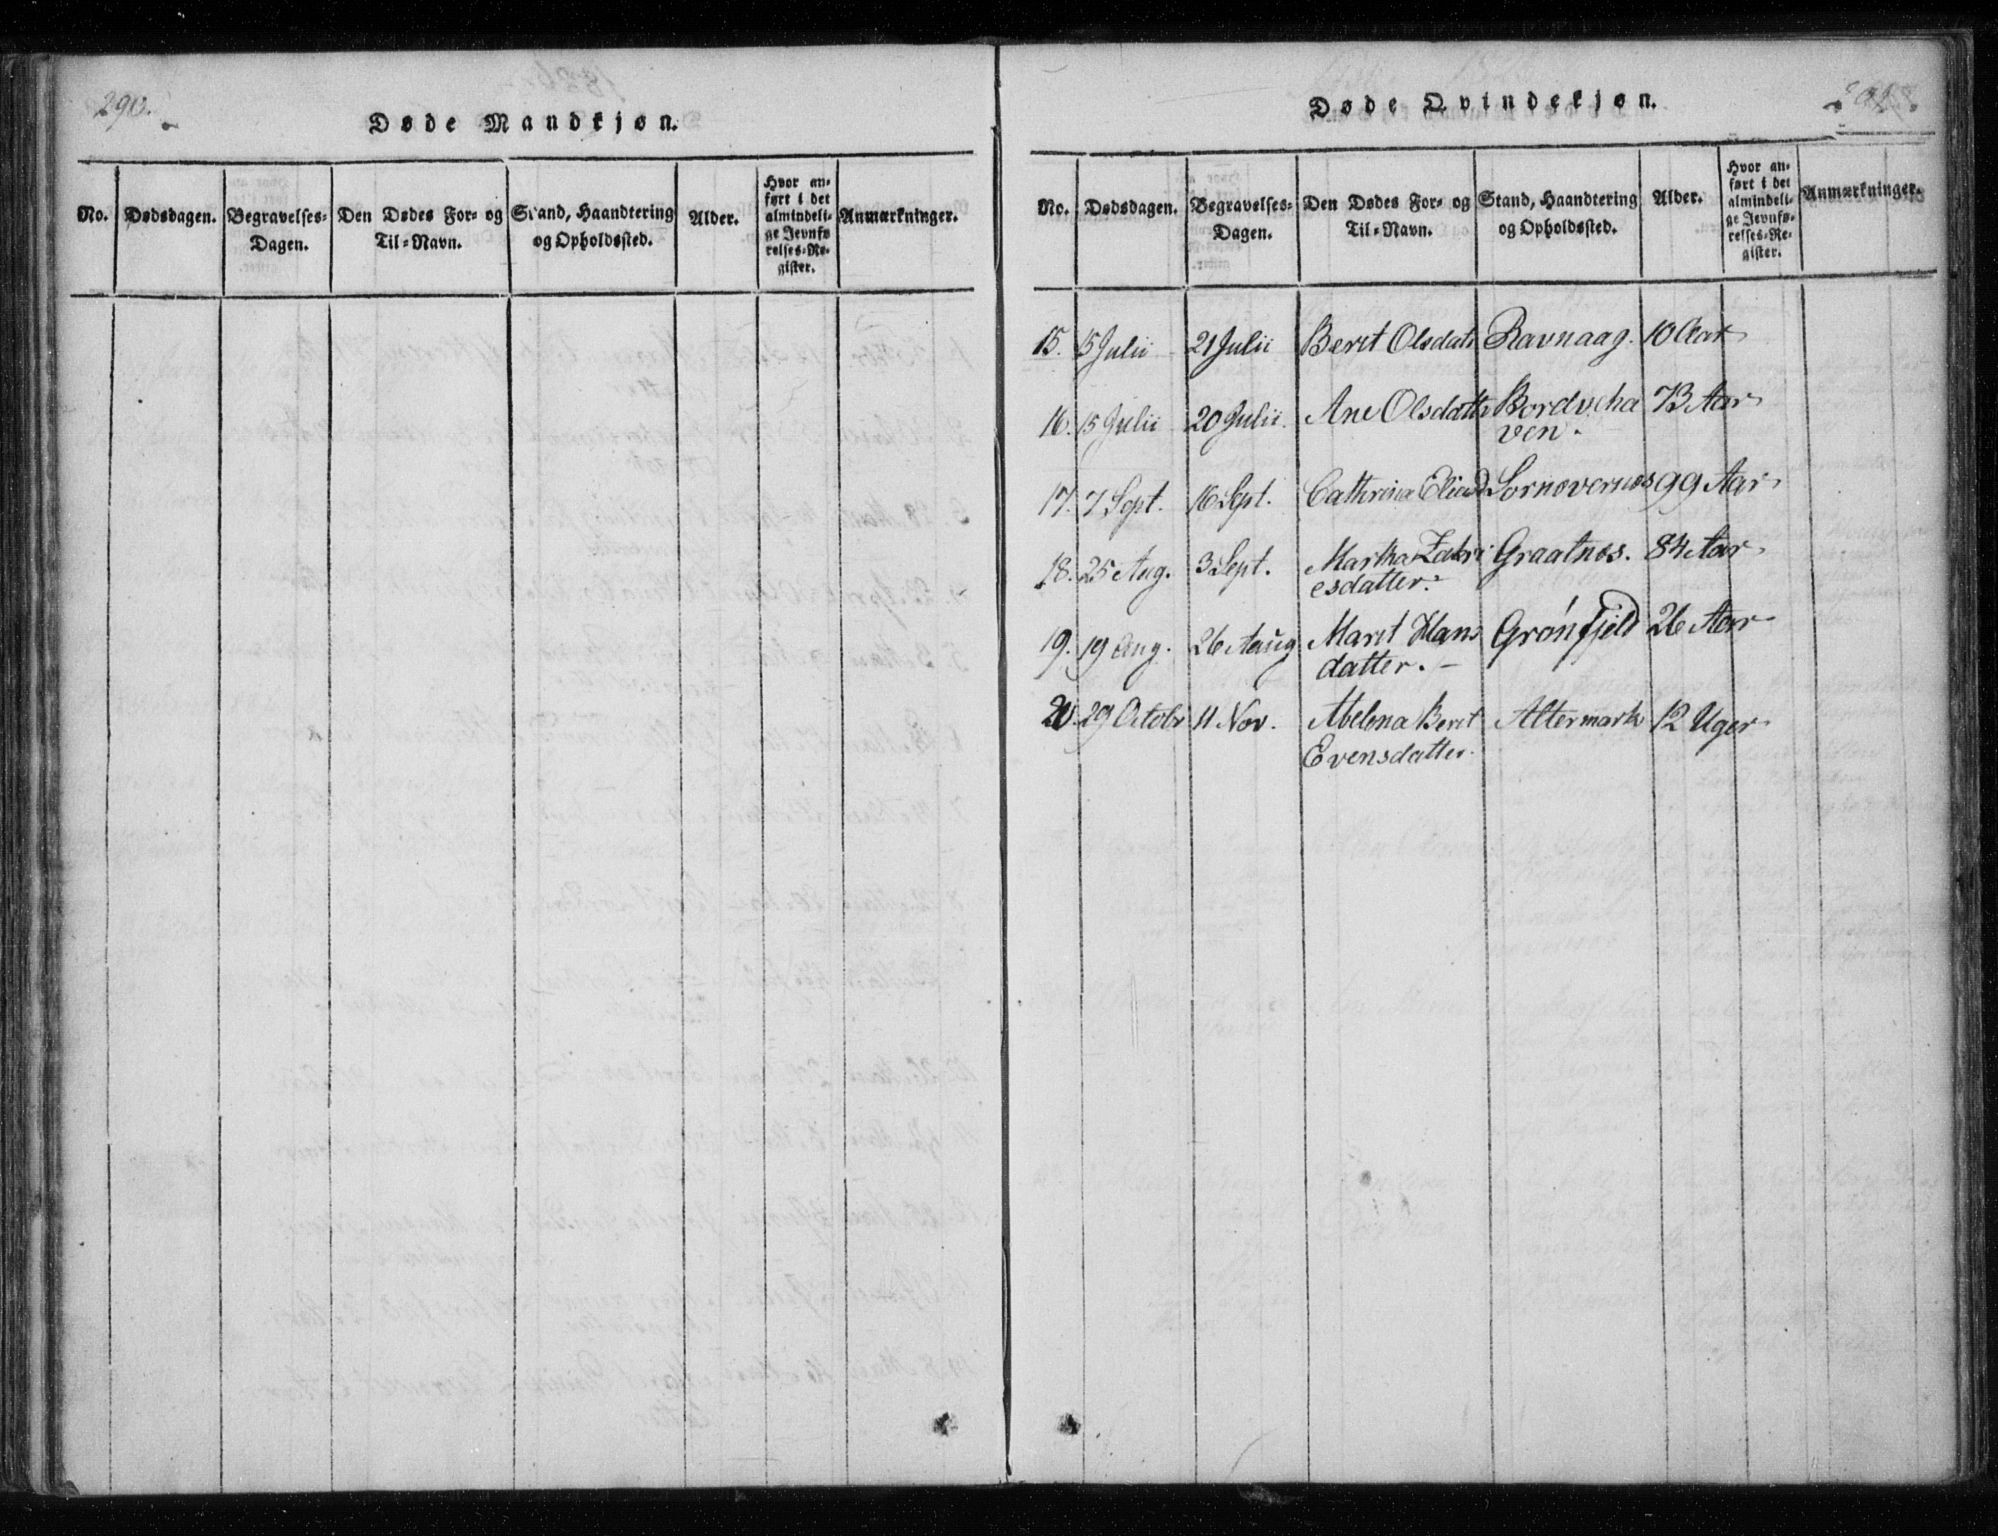 290.
Døde Mandkjøn.
No. Dødsdagen. Begravelses-Dagen. Den Dødes For- og Til-Navn. Stand, Haandtering og Opholdssted. Alder. Hvor anført i det almindelige Jevnførelses-Register. Anmærkninger.
Døde Qvindekjøn.
No. Dødsdagen. Begravelses-Dagen. Den Dødes For- og Til-Navn. Stand, Haandtering og Opholdssted. Alder. Hvor anført i det almindelige Jevnførelses-Register. Anmærkninger.
15. 15 Julii 21 Julii Berit Olsdatr Ravnaag. 10 Aar
16. 15 Julii 20 Julii. Ane Olsdattr Bordveha 73 Aar
ven.
17. 7 Sept. 16 Sept. Cathrina Eliasd Sornovernes 99 Aar
18. 25 Aug. 3 Sept. Martha Zakri Graatnes. 84 Aar
esdatter.
19. 19 Aug. 26 Aaug Marit Hans Grønfjeld 26 Aar
datter. —
20. 29 Octobr 11 Nov. Abelona Berit Altermark 12 Uger
Evensdatter.